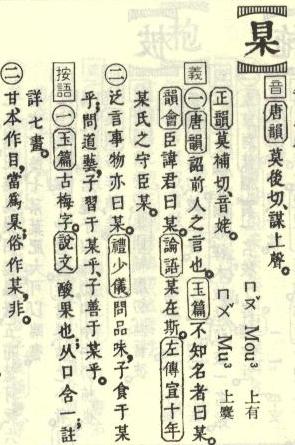 【杲】
音 唐韻 莫後切、謀上聲。 ㄇㄡ Mou³ 上有
正韻 莫補切、音姥。 ㄇㄨ Mu³ 上麌
義 ㊀唐韻 詔前人之言也。玉篇 不知名者曰某。
韻會 臣諱君曰某。論語 某在斯。左傳宣十年
某氏之守臣某。
㊁泛言事物亦曰某。禮少儀 問品味,子食于某
乎;問道藝,子習于某乎、子善于某乎。
按語 ㊀玉篇 古梅字。說文 酸果也;从口含一;註
詳七畫。
㊁甘本作目,當爲杲,俗作某,非。